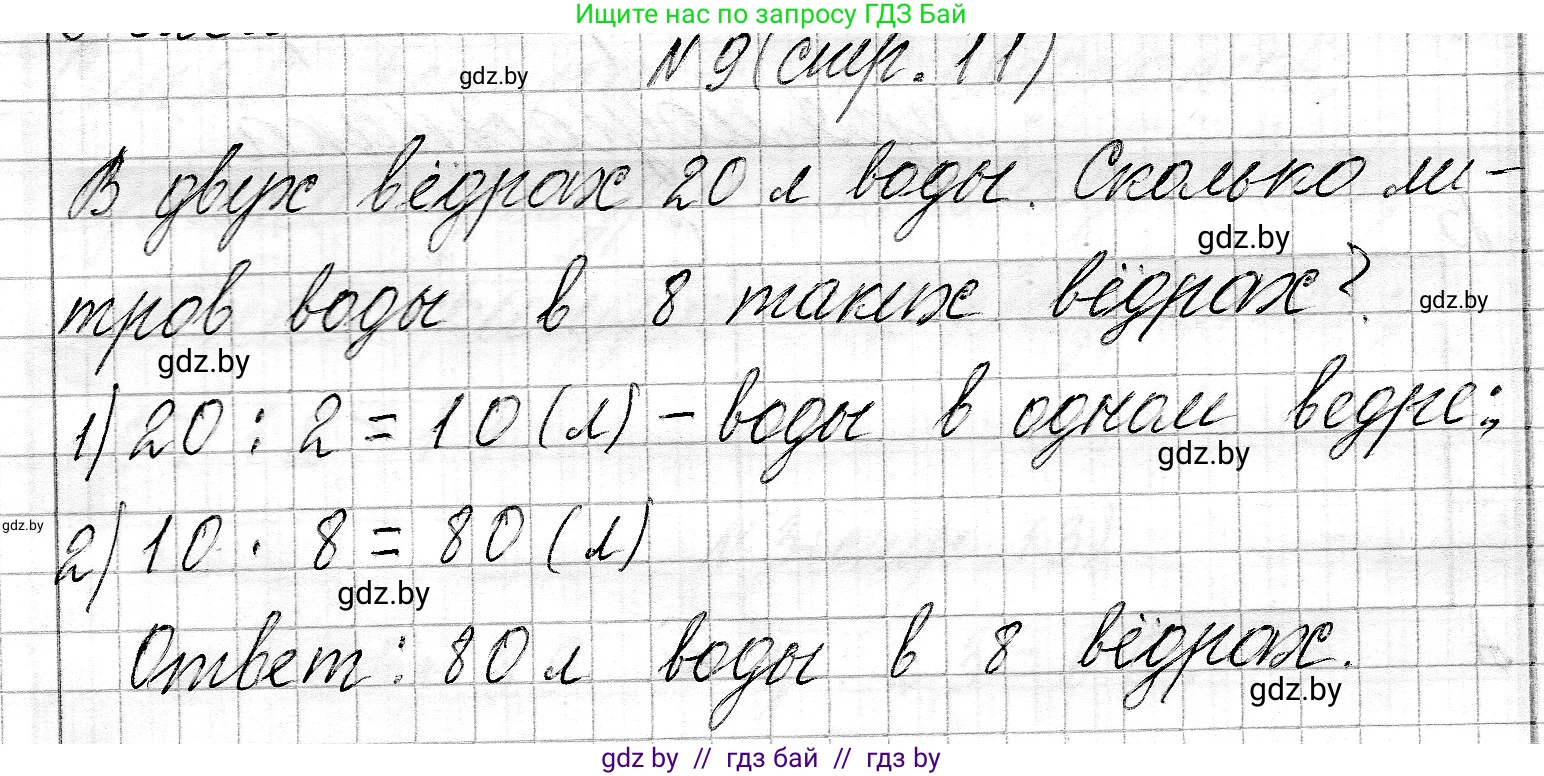 Ищите нас по запросу ГДЗ Бай
N 9 (стр. 11)
gdz.by
В двух вёдрах 20 л воды. Сколько ли-
gdz.by
тров воды в 8 таких вёдрах?
gdz.by
gdz.by
1) 20 : 2 = 10 (л) – воды в одном ведре;
gdz.by
gdz.by
2) 10 · 8 = 80 (л)
gdz.by
Ответ: 80 л воды в 8 вёдрах.
gdz.by
gdz by // гдз бай // гдз by